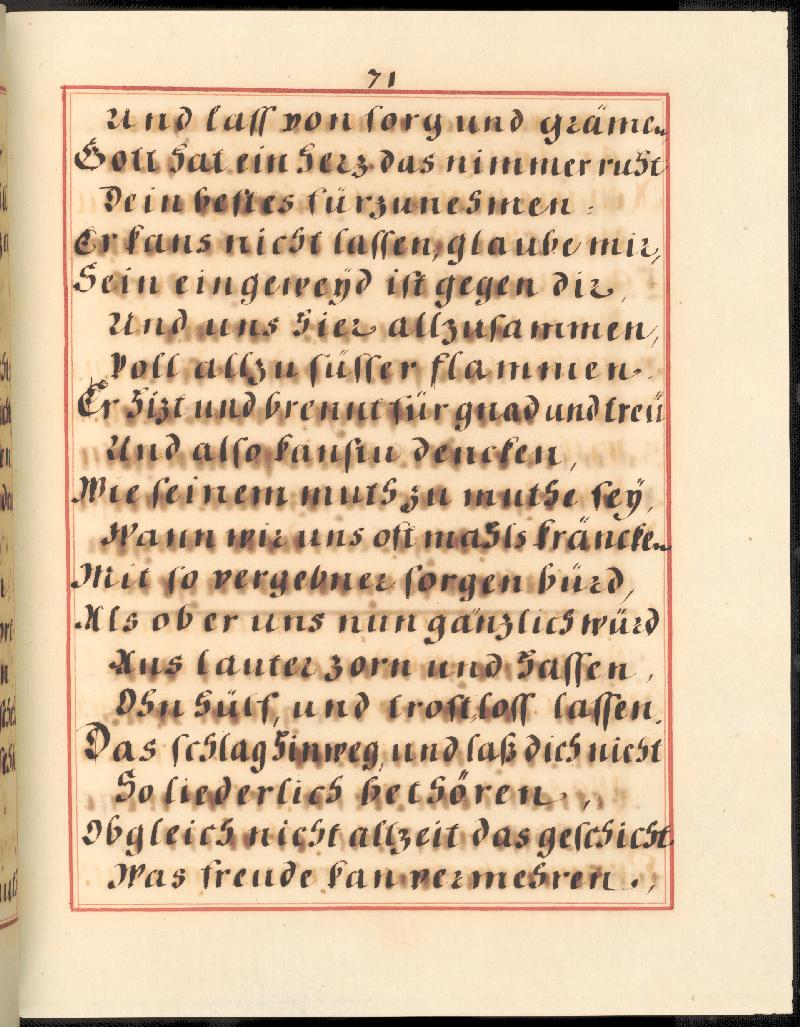 71
Und lass von sorg und gräme„
Gott hat ein herz das nimmer ruht
Dein bestes fürzunehmen.
Er kans nicht lassen, glaube mir,
Sein eingeweÿd ist gegen dir,
Und uns hier allzusammen,
Voll allzu süsser flammen.
Er hizt und brennt für gnad und treü
Und also kanstu dencken,
Wie seinem muth zu muthe seÿ,
Wann wir uns oftmahls kräncke„
Mit so vergebner sorgen bürd,
Als ob er uns nun gänzlich würd
Aus lauter zorn und hassen,
Ohn hülf, und trostloss lassen.
Das schlag hinweg, und laß dich nicht
So liederlich bethören,
Obgleich nicht allzeit das geschicht
Was freude kan vermehren.,